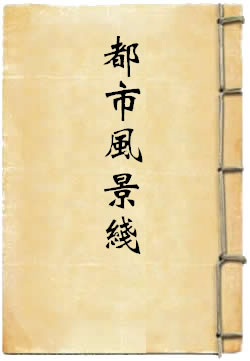 都市風景綫